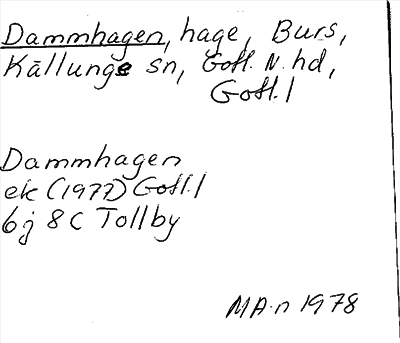 Dammhagen, hage, Burs,
Källunge sn, Gotl. N. hd,
Gotl. l
Dammhagen
ek (1977) Gotl. l
6j 8 C Tollby
MA-n 1978